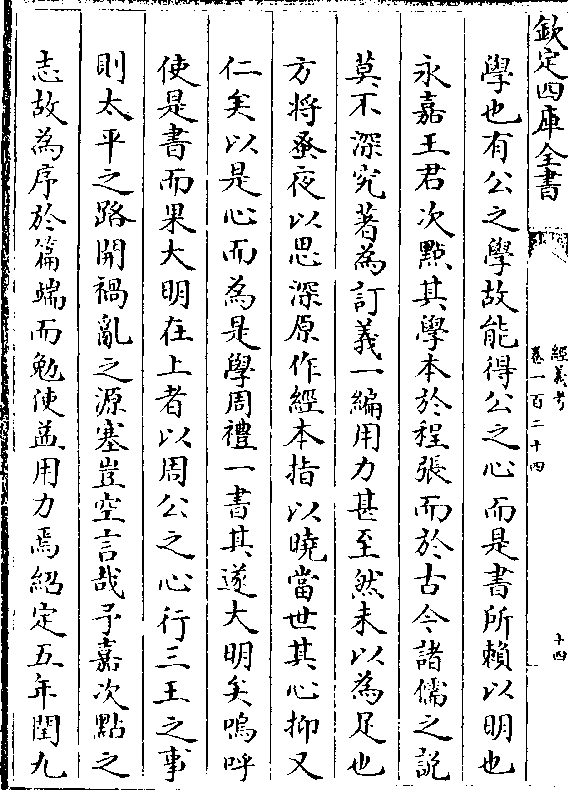 欽定四庫全書
經義考
卷一百二十四
十四
學也有公之學故能得公之心而是書所賴以明也
永嘉王君次㸃其學本於程張而於古今諸儒之説
莫不深究著為訂義一編用力甚至然未以為足也
方將蚤夜以思深原作經本指以曉當世其心抑又
仁矣以是心而為是學周禮一書其遂大明矣嗚呼
使是書而果大明在上者以周公之心行三王之事
則太平之路開禍亂之源塞豈空言哉予嘉次㸃之
志故為序於篇端而勉使益用力焉紹定五年閏九